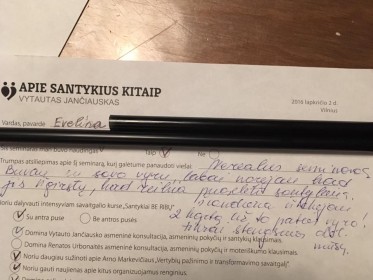 APIE SANTYKIUS KITAIP
VYTAUTAS JANČIAUSKAS
2016 lapkričio 2 d.
Vilnius
Vardas, pavardė Evelina
Taip Ne
Trumpas atsiliepimas apie šį seminarą, kurį galėtume panaudoti viešai. Nerealus seminaras.
Buvau su savo vyru, labai norėjau kad
jis išgirstų, kad reikia puoselėti santykius.
Šiandiena išklausiau
2 kartą už to paties vyro!
Noriu dalyvauti intensyviam savaitgalio kurse „Santykiai BE RIBŲ"
Su antra puse Be antros pusės
tikrai stengiamės dėl
mūsų.
Domina Vytauto Jančiausko asmeninė konsultacija, asmeninių pokyčių ir santykių klausimais
Domina Renatos Urbonaitės asmeninė konsultacija, asmeninių pokyčių ir moteriškumo klausimais
Noriu daugiau sužinoti apie Arno Markevičiaus „Vertybių pažinimo ir transformavimo savaitgalį".
Noriu gauti naujienas apie kitus organizuojamus renginius.